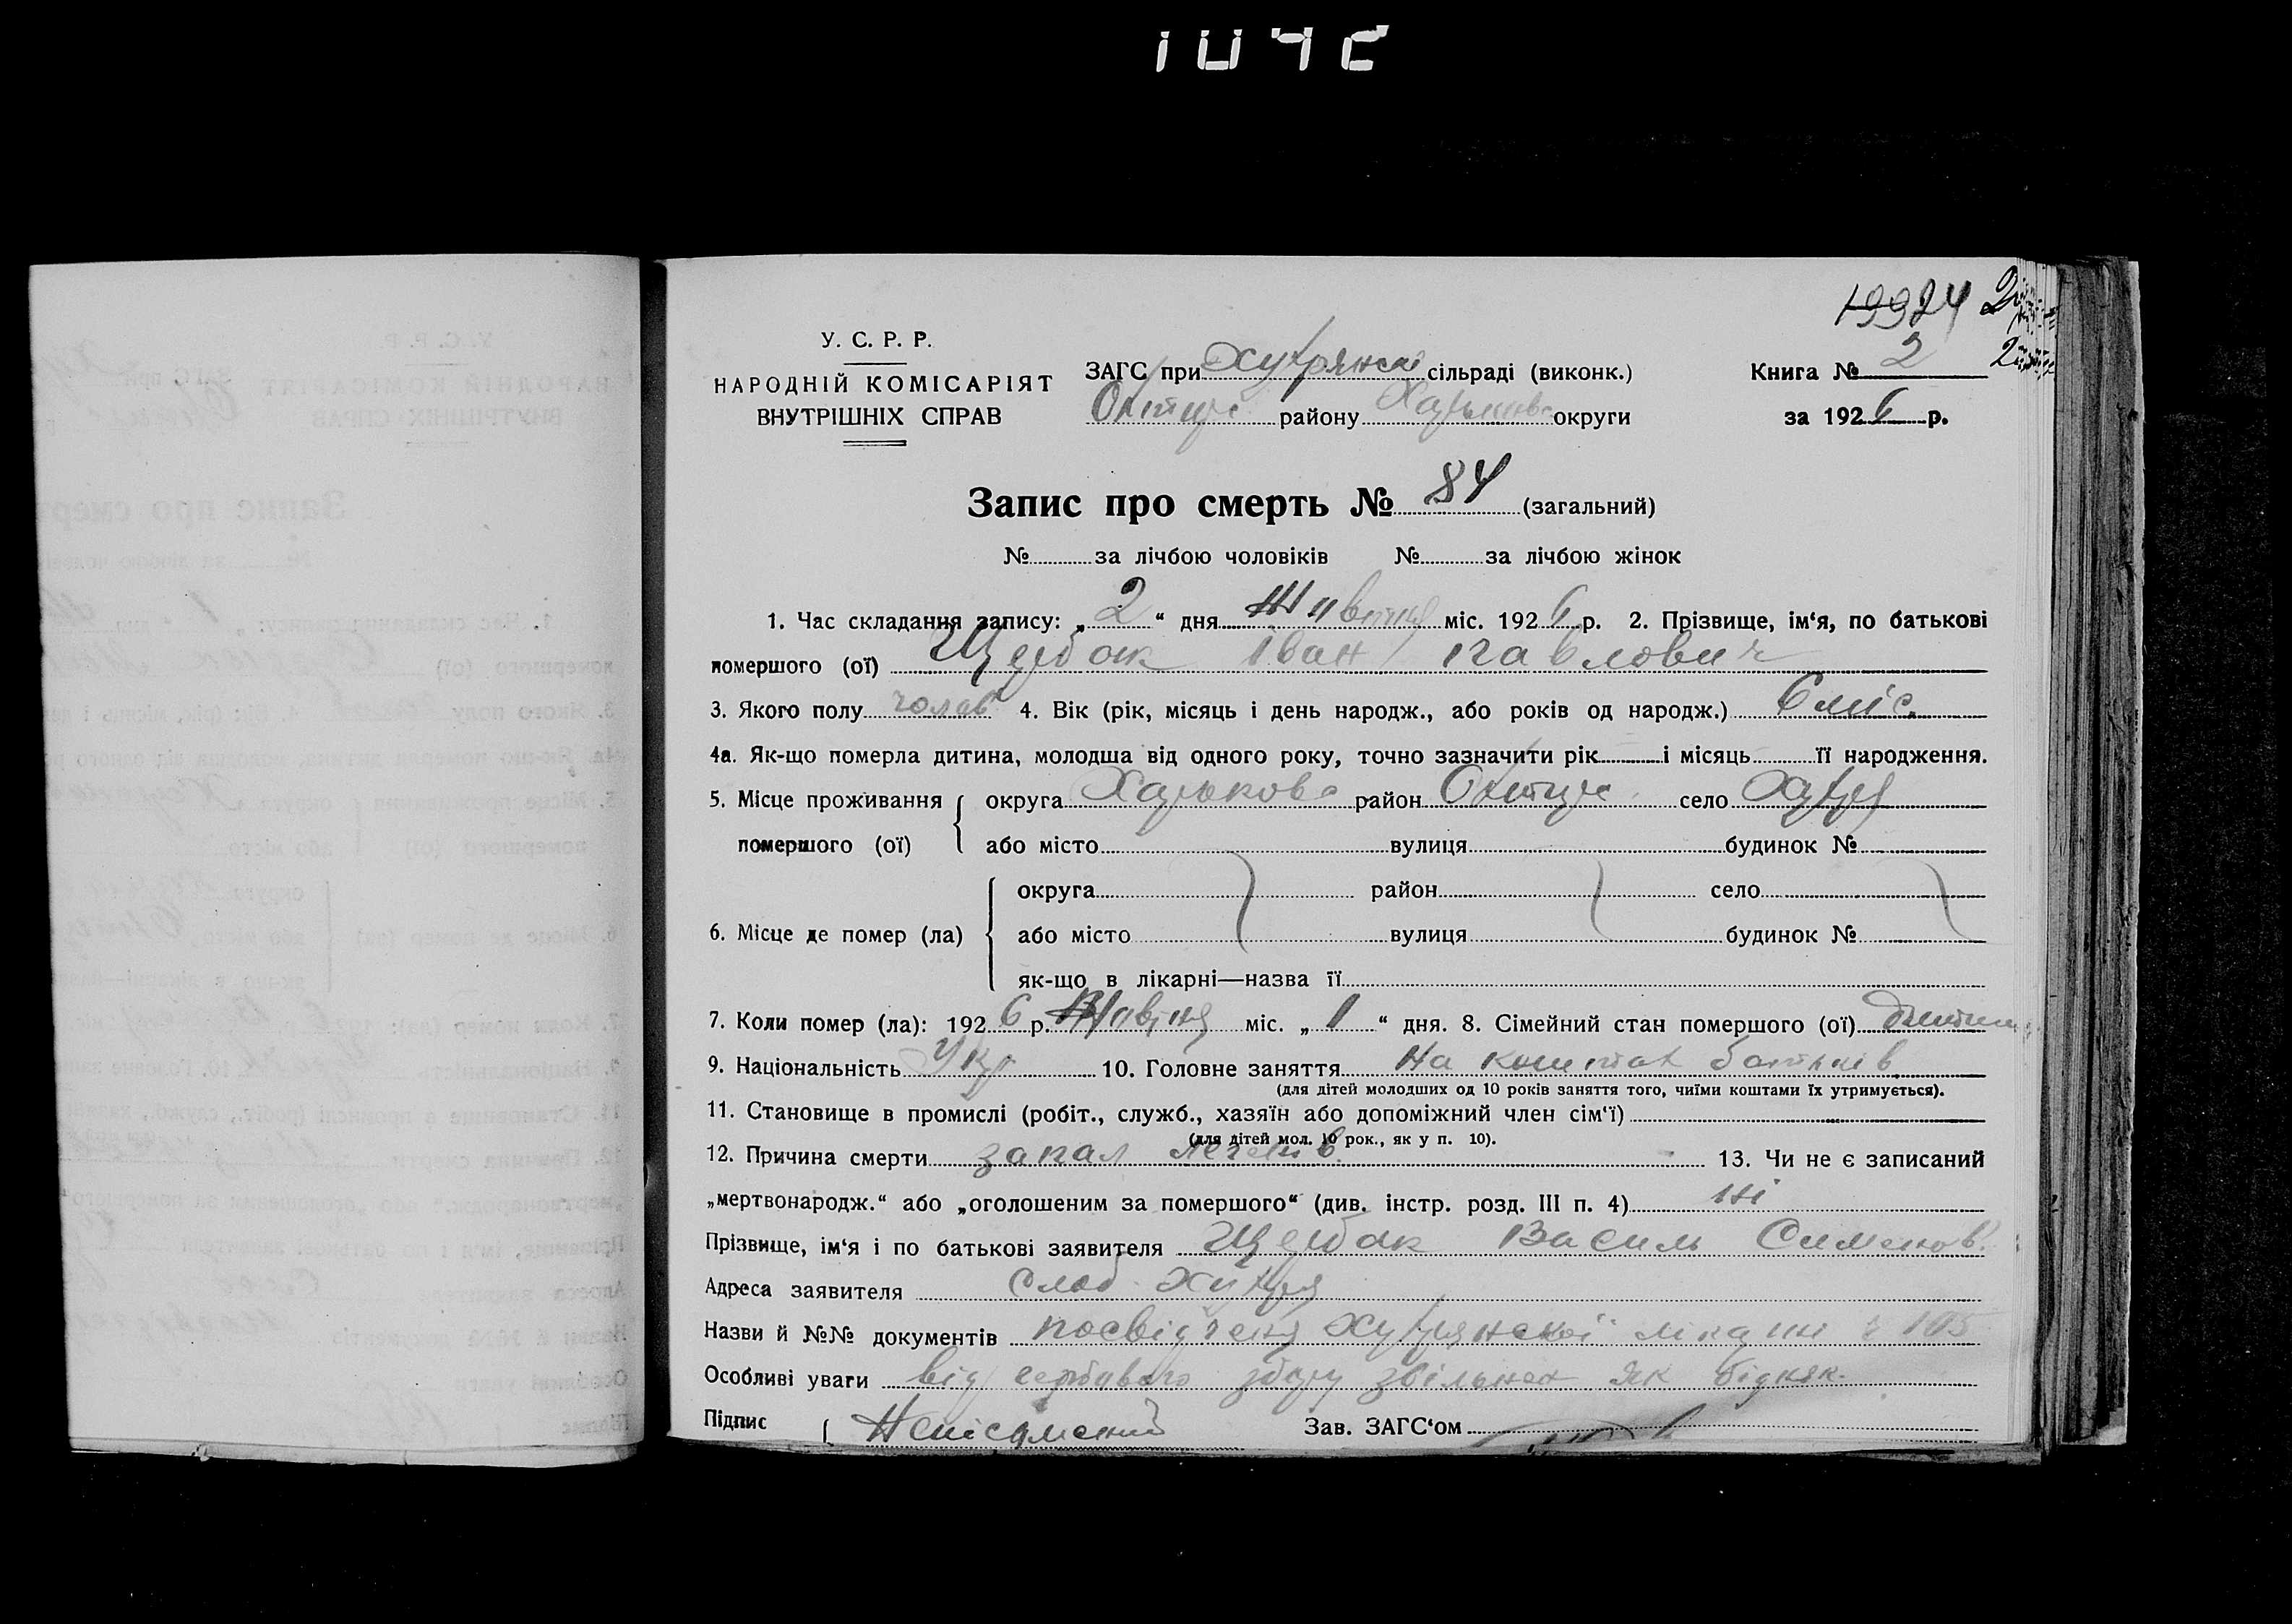 1042
19924
У. С. Р. Р.
НАРОДНІЙ КОМІСАРІЯТ
ВНУТРІШНІХ СПРАВ
ЗАГС при сільраді (виконк.)
району округи
Книга № 2
за 1926 р.
Запис про смерть № 84 (загальний)
№ за лічбою чоловіків № за лічбою жінок
1. Час складання запису: „2“ дня Жовтня міс. 1926 р. 2. Прізвище, ім‘я, по батькові
помершого (ої) Щербак Іван Павлович
3. Якого полу чолов 4. Вік (рік, місяць і день народж., або років од народж.) 6 міс.
4а. Як-що померла дитина, молодша від одного року, точно зазначити рік і місяць її народження.
5. Місце проживання помершого (ої) округа Харьковс район село
або місто вулиця будинок №
6. Місце де помер (ла) округа район село
або місто вулиця будинок №
як-що в лікарні—назва її
7. Коли помер (ла): 1926 р. Жовтня міс. „1“ дня. 8. Сімейний стан помершого (ої) дитина
9. Національність Укр 10. Головне заняття на коштах батьків
(для дітей молодших од 10 років заняття того, чиїми коштами їх утримується).
11. Становище в промислі (робіт., служб., хазяїн або допоміжний член сім‘ї)
(для дітей мол. 10 рок., як у п. 10).
12. Причина смерти запал легенів. 13. Чи не є записаний
„мертвонародж.“ або „оголошеним за помершого“ (див. інстр. розд. III п. 4) ні
Прізвище, ім‘я і по батькові заявителя Щербак Василь Семенов.
Адреса заявителя Слоб.
Назви й №№ документів посвідчення лікарні 105
Особливі уваги від гербового збору звільнен як бідняк.
Підпис Неписьменний Зав. ЗАГС‘ом